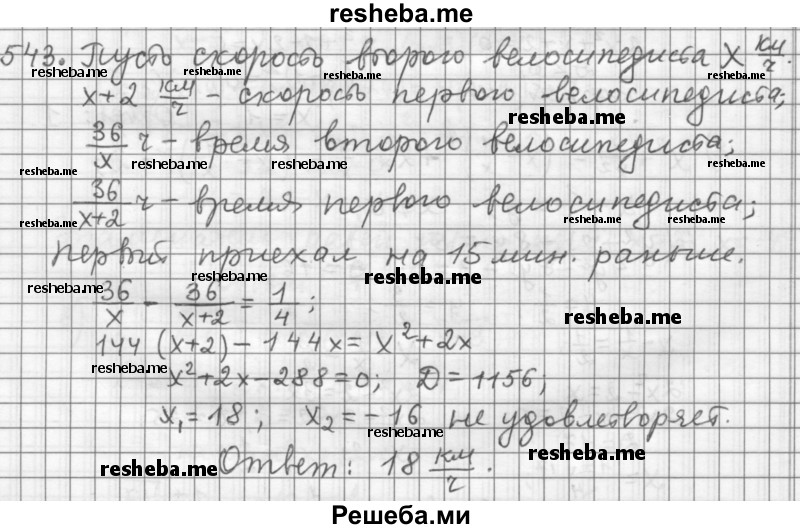 resheba.me
543. Пусть скорость второго велосипедиста x км/ч.
resheba.me resheba.me resheba.me resheba.me
x+2 км/ч - скорость первого велосипедиста;
resheba.me
36/x ч - время второго велосипедиста;
resheba.me resheba.me resheba.me resheba.me
36/(x+2) ч - время первого велосипедиста;
resheba.me resheba.me resheba.me
первый приехал на 15 мин. раньше.
resheba.me resheba.me resheba.me
36/x - 36/(x+2) = 1/4;
resheba.me
144 (x+2) - 144x = x²+2x
resheba.me
x²+2x-288=0; D=1156;
x₁=18; x₂=-16 не удовлетворяет.
resheba.me
Ответ: 18 км/ч.
resheba.me resheba.me
Решеба.ми